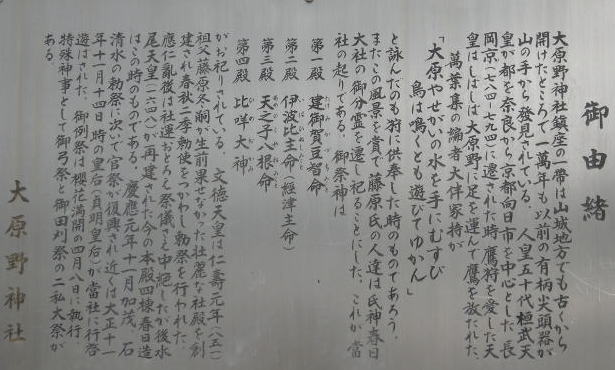 御由緒
大原野神社鎮座の一帯は山城地方でも古くから
開けたところで一萬年も以前の有柄尖頭器が
山の手から發見されている。人皇五十代桓武天
皇が都を奈良から京都向日市を中心とした長
岡京(七八四-七九四)に遷された時鷹狩を愛した天
皇はしばしば大原野に足を運んで鷹を放たれた。
萬葉集の編者大伴家持が
「大原やせがいの水を手にむすび
鳥は鳴くとも遊びてゆかん」
と詠んたのも狩に供奉した時のものであろう。
またこの風景を賞で藤原氏の人達は氏神春日
大社の御分霊を遷し祀ることにした。これが當
社の起りである。御祭神は
第一殿 建御賀豆智命
第二殿 伊波比主命(經津主命)
第三殿 天之子八根命
第四殿 比咩大神
がお祀りされている。文徳天皇は仁壽元年(八五一)
祖父藤原冬嗣が生前果せなかった壮麗な社殿を創
建され春秋二季勅使をつかわし勅祭を行われた。
應仁亂後は社運おとろえ祭儀さえ中絶したが後水
尾天皇(一六四八)が再建された今の本殿四棟春日造
はこの時のものである。慶應元年十一月加茂、石
清水の勅祭に次いで官祭が復興され近くは大正十一
年十一月十四日時の皇后(貞明皇后)が當社に行啓
遊ばされた。御例祭は櫻花満開の四月八日に執行、
特殊神事として御弓祭と御田刈祭の二私大祭が
ある。
大原野神社